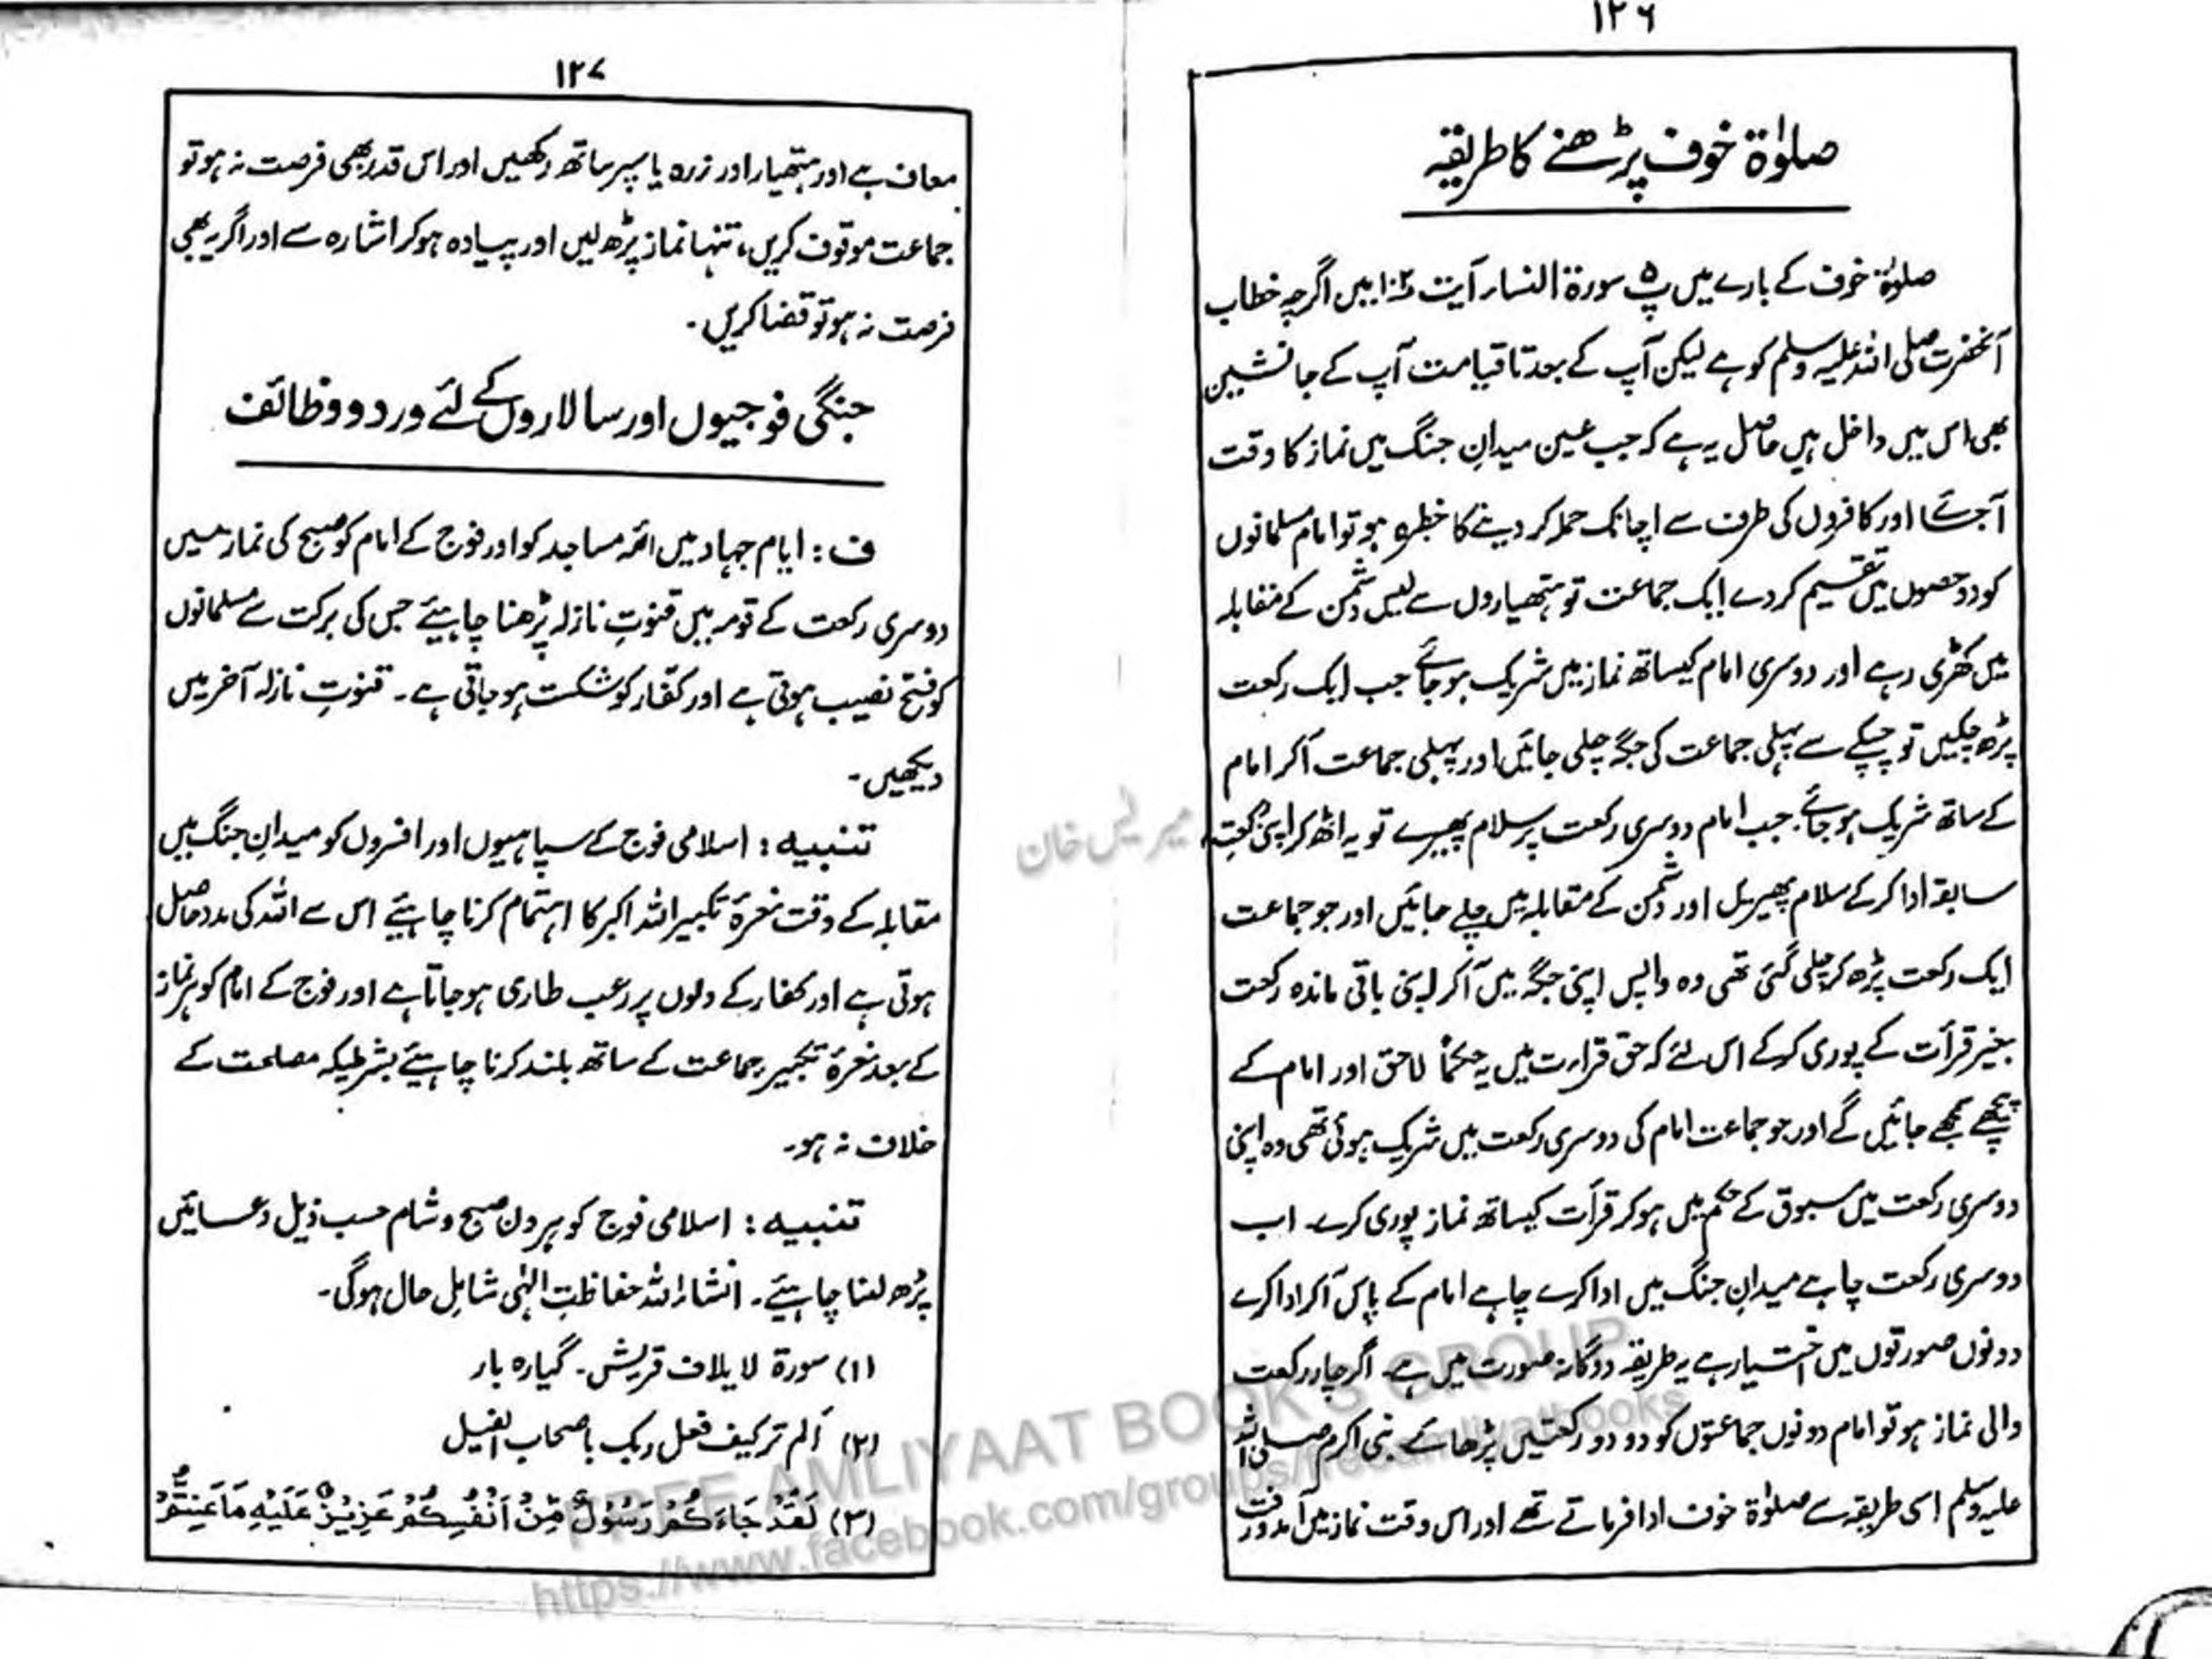 ۱۲۶
صلوٰۃ خوف پڑھنے کا طریقہ
صلوٰۃ خوف کے بارے میں پ۵ سورۃ النساء آیت ۱۰۲ میں اگرچہ خطاب
آنحضرت صلی اللہ علیہ وسلم کو ہے لیکن آپ کے بعد تا قیامت آپ کے جانشین
بھی اس میں داخل ہیں حاصل یہ ہے کہ جب عین میدانِ جنگ میں نماز کا وقت
آجائے اور کافروں کی طرف سے اچانک حملہ کر دینے کا خطرہ ہو تو امام مسلمانوں
کو دو حصوں میں تقسیم کر دے ایک جماعت تو ہتھیاروں سے لیس دشمن کے مقابلہ
میں کھڑی رہے اور دوسری امام کیساتھ نماز میں شریک ہو جائے جب ایک رکعت
پڑھ چکیں تو چپکے سے پہلی جماعت کی جگہ چلی جائیں اور پہلی جماعت آکر امام
کے ساتھ شریک ہو جائے۔ جب امام دوسری رکعت پر سلام پھیرے تو یہ اٹھ کر اپنی رکعتِ
سابقہ ادا کر کے سلام پھیریں اور دشمن کے مقابلہ میں چلے جائیں اور جو جماعت
ایک رکعت پڑھ کر چلی گئی تھی وہ واپس اپنی جگہ میں آکر اپنی باقی ماندہ رکعت
بغیر قرأت کے پوری کر کے اس لئے کہ حق قراءت میں یہ حکماً لاحق اور امام کے
پیچھے سمجھے جائیں گے اور جو جماعت امام کی دوسری رکعت میں شریک ہوئی تھی وہ اپنی
دوسری رکعت میں مسبوق کے حکم میں ہو کر قرأت کیساتھ نماز پوری کرے۔ اب
دوسری رکعت چاہے میدانِ جنگ میں ادا کرے چاہے امام کے پاس آکر ادا کرے
دونوں صورتوں میں اختیار ہے یہ طریقہ دوگانہ صورت میں ہے۔ اگر چار رکعت
والی نماز ہو تو امام دونوں جماعتوں کو دو دو رکعتیں پڑھائے نبی اکرم صلی اللہ
علیہ وسلم اسی طریقہ سے صلوٰۃ خوف ادا فرماتے تھے اور اس وقت نماز میں آمدورفت
۱۲۷
معاف ہے اور ہتھیار اور زرہ یا سپر ساتھ رکھیں اور اس قدر بھی فرصت نہ ہو تو
جماعت موقوف کریں، تنہا نماز پڑھ لیں اور پیادہ ہو کر اشارہ سے اور اگر یہ بھی
فرصت نہ ہو تو قضا کریں۔
جنگی فوجیوں اور سالاروں کے لئے ورد و وظائف
ف : ایام جہاد میں ائمہ مساجد کو اور فوج کے امام کو صبح کی نماز میں
دوسری رکعت کے قومہ میں قنوتِ نازلہ پڑھنا چاہیئے جس کی برکت سے مسلمانوں
کو فتح نصیب ہوتی ہے اور کفار کو شکست ہو جاتی ہے۔ قنوتِ نازلہ آخر میں
دیکھیں۔
تنبیہ : اسلامی فوج کے سپاہیوں اور افسروں کو میدانِ جنگ میں
مقابلہ کے وقت نعرۂ تکبیر اللہ اکبر کا اہتمام کرنا چاہیئے اس سے اللہ کی مدد حاصل
ہوتی ہے اور کفار کے دلوں پر رعب طاری ہو جاتا ہے اور فوج کے امام کو ہر نماز
کے بعد نعرۂ تکبیر جماعت کے ساتھ بلند کرنا چاہیئے بشرطیکہ مصلحت کے
خلاف نہ ہو۔
تنبیہ : اسلامی فوج کو ہر دن صبح و شام حسب ذیل دعائیں
پڑھ لینا چاہیئے۔ انشاء اللہ حفاظتِ الٰہی شاملِ حال ہوگی۔
(۱) سورۃ لایلاف قریش۔ گیارہ بار
(۲) اَلم ترکیف فعل ربک باصحاب الفیل
(۳) لَقَدْ جَاءَكُمْ رَسُوْلٌ مِّنْ اَنْفُسِكُمْ عَزِيْزٌ عَلَيْهِ مَا عَنِتُّمْ
FREE AMLIYAAT BOOK'S GROUP
https://www.facebook.com/groups/freeamliyatbooks